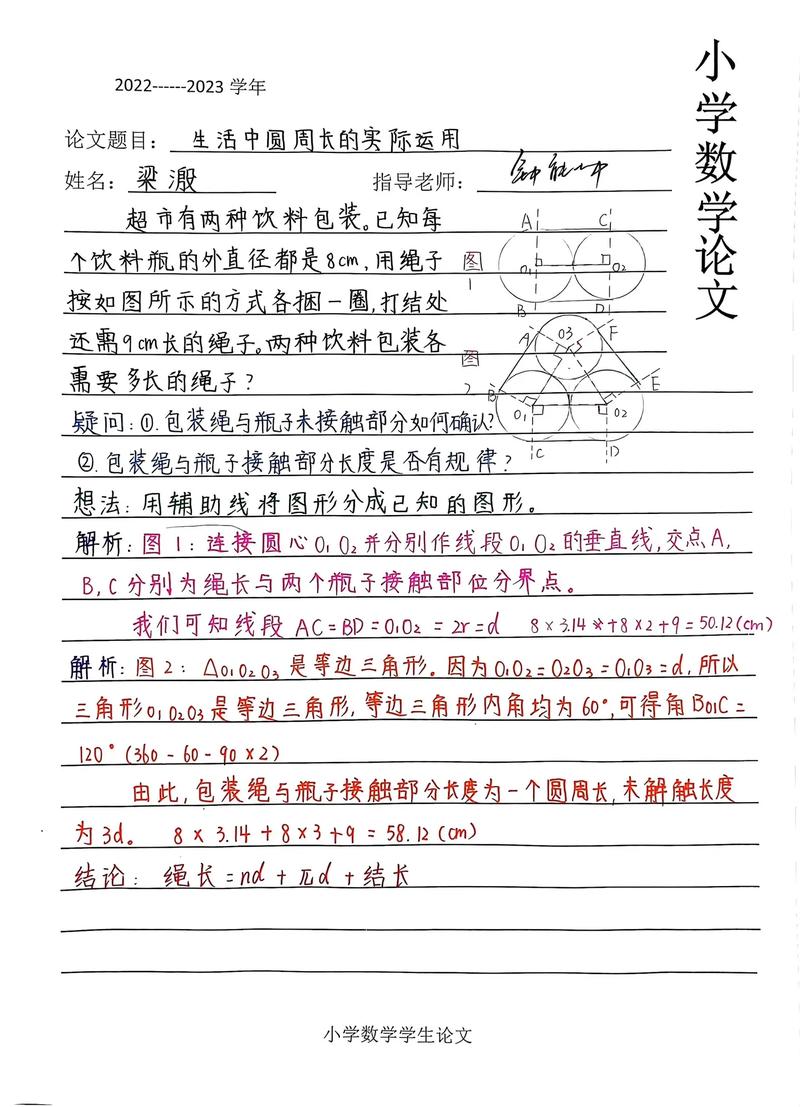 2022------2023 学年
小学数学论文
论文题目： 生活中圆周长的实际运用
姓名： 梁溵
指导老师：
超市有两种饮料包装。已知每
个饮料瓶的外直径都是8cm，用绳子
按如图所示的方式各捆一圈，打结处
还需9cm长的绳子。两种饮料包装各
需要多长的绳子？
图1
A C
O1 O2
B D
图2
A O3 F
B E
O1 O2
C D
疑问：①.包装绳与瓶子未接触部分如何确认？
②.包装绳与瓶子接触部分长度是否有规律？
想法：用辅助线将图形分成已知的图形。
解析：图1：连接圆心O1O2并分别作线段O1O2的垂直线，交点A，
B，C分别为绳长与两个瓶子接触部位分界点。
我们可知线段 AC=BD=O1O2=2r=d 8×3.14+8×2+9=50.12(cm)
解析：图2：△O1O2O3是等边三角形。因为O1O2=O2O3=O1O3=d，所以
三角形O1O2O3是等边三角形，等边三角形内角均为60°，可得角BO1C=
120°(360-60-90×2)
由此，包装绳与瓶子接触部分长度为一个圆周长，未解触长度
为3d。 8×3.14+8×3+9=58.12(cm)
结论：绳长=nd+πd+结长
小学数学学生论文